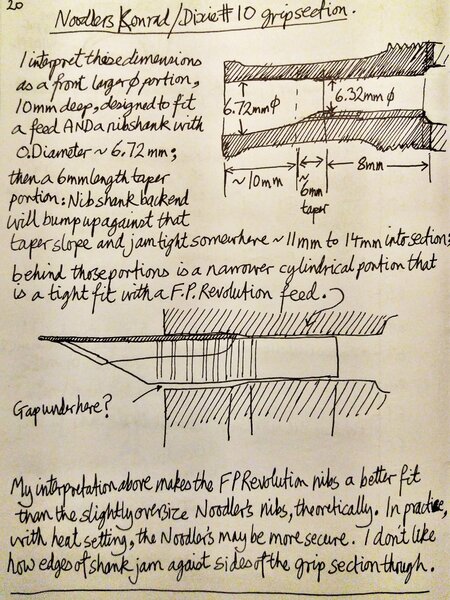 20
Noodlers Konrad/Dixie #10 grip section.
I interpret these dimensions
as a front larger Ø portion,
10mm deep, designed to fit
a feed AND a nib shank with
O.Diameter ~ 6.72 mm;
then a 6mm length taper
portion: Nib shank back end
will bump up against that
taper slope and jam tight somewhere ~11mm to 14mm into section:
behind those portions is a narrower cylindrical portion that
is a tight fit with a F.P.Revolution feed.
6.72mmØ
6.32mmØ
~10mm
~
6mm
taper
8mm
Gap under here?
My interpretation above makes the FPRevolution nibs a better fit
than the slightly oversize Noodler's nibs, theoretically. In practice,
with heat setting, the Noodler's may be more secure. I don't like
how edges of shank jam agaist sides of the grip section though.